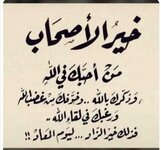 خير الأصحاب
من أحبك في الله
وذكرك بالله .. وخوفك من غضب الله
ورغبك في لقاء الله ..
فذلك خير الزاد ... ليوم المعاد !!